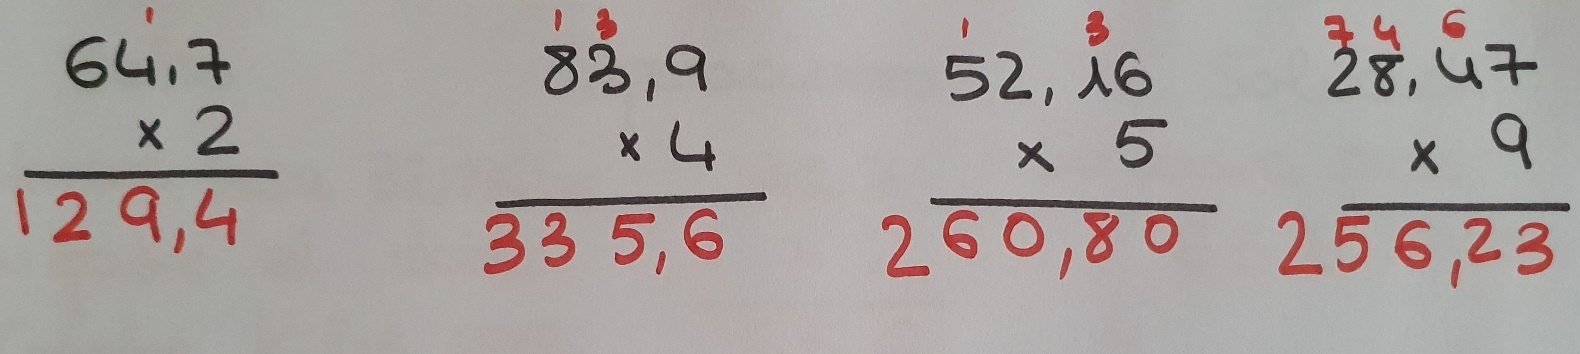 1
64,7
× 2
129,4
1 3
83,9
× 4
335,6
1 3
52,16
× 5
260,80
7 4 6
28,47
× 9
256,23